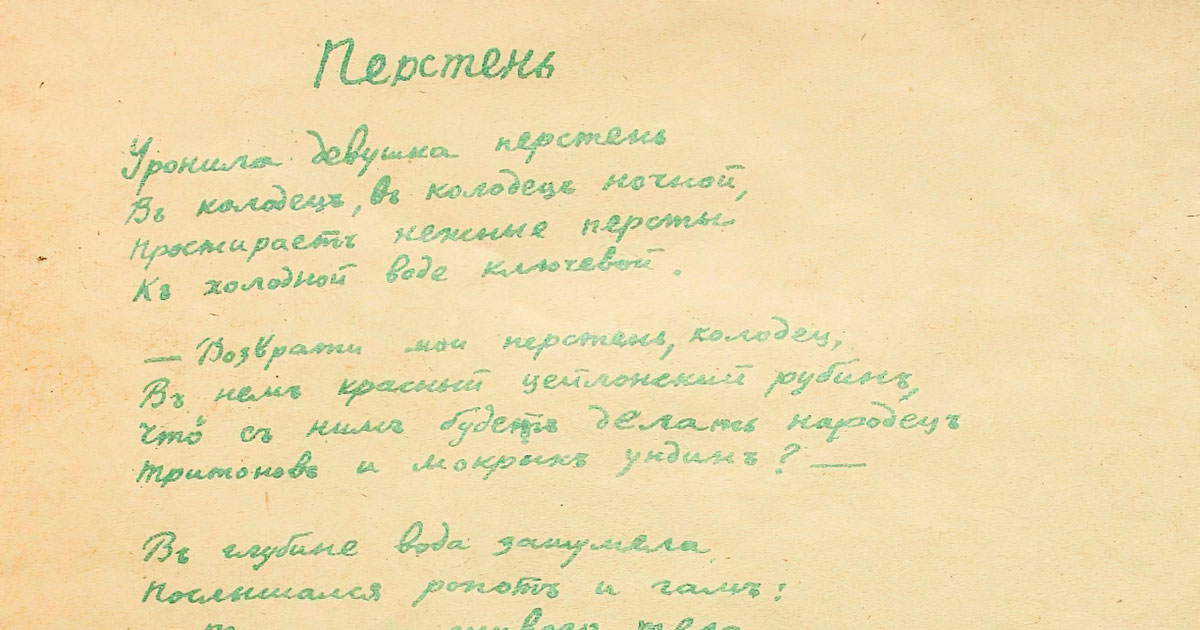 Перстень
Уронила девушка перстень
Въ колодецъ, въ колодецъ ночной,
Простираетъ нежные персты
Къ холодной воде ключевой.
— Возврати мой перстень, колодец,
Въ немъ красный цейлонский рубинъ,
Что съ нимъ будетъ делать народецъ
Тритоновъ и мокрыхъ ундинъ? —
Въ глубине вода зашумела
Послышался ропотъ и гамъ: